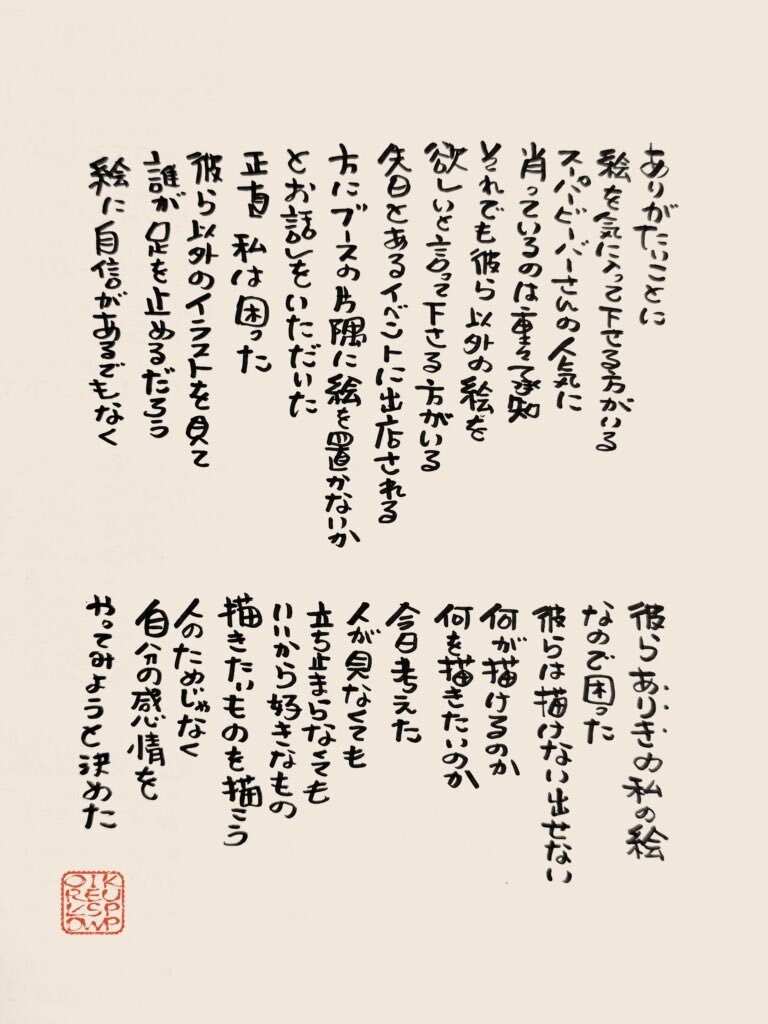 ありがたいことに
絵を気に入って下さる方がいる
スーパービーバーさんの人気に
肖っているのは重々承知
それでも彼ら以外の絵を
欲しいと言って下さる方がいる
先日とあるイベントに出店される
方にブースの片隅に絵を置かないか
とお話しをいただいた
正直 私は困った
彼ら以外のイラストを見て
誰が足を止めるだろう
絵に自信があるでもなく
彼らありきの私の絵
なので困った
彼らは描けない出せない
何が描けるのか
何を描きたいのか
今日考えた
人が見なくても
立ち止まらなくても
いいから好きなもの
描きたいものを描こう
人のためじゃなく
自分の感情を
やってみようと決めた